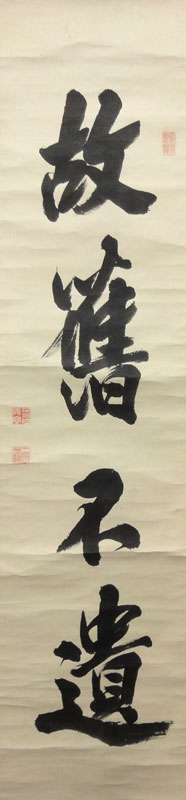 故舊不遺